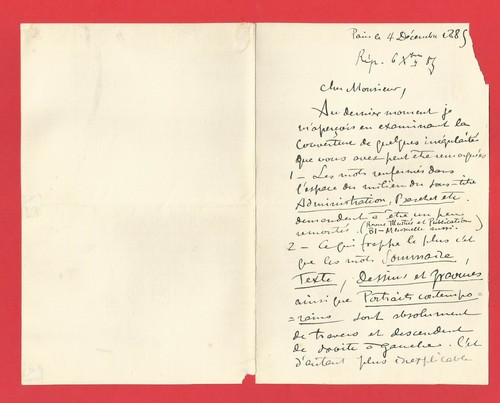 Paris le 4 Décembre 1885
Rép. 6 Xbre 85
Cher Monsieur,
Au dernier moment je
m'aperçois en examinant la
couverture de quelques irrégularités
que vous avez peut être remarquées
1 — Les mots renfermés dans
l'espace du milieu du sous-titre
Administration, Baschet etc.
demandent à être un peu
remontés. (Revue Illustrée et Publication
Bi-Mensuelle aussi.)
2 — Ce qui frappe le plus c'est
que les mots Sommaire,
Texte, Dessins et gravures
ainsi que Portraits contempo-
=rains sont absolument
de travers et descendent
de droite à gauche. C'est
d'autant plus inexplicable